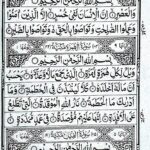 بِسْمِ اللهِ الرَّحْمٰنِ الرَّحِيْمِ
وَالْعَصْرِ اِنَّ الْاِنْسَانَ لَفِيْ خُسْرٍ اِلَّا الَّذِيْنَ اٰمَنُوْا
وَعَمِلُوا الصّٰلِحٰتِ وَتَوَاصَوْا بِالْحَقِّ وَتَوَاصَوْا بِالصَّبْرِ
بِسْمِ اللهِ الرَّحْمٰنِ الرَّحِيْمِ
وَيْلٌ لِّكُلِّ هُمَزَةٍ لُّمَزَةٍ الَّذِيْ جَمَعَ مَالًا وَّعَدَّدَهٗ يَحْسَبُ
اَنَّ مَالَهٗٓ اَخْلَدَهٗ كَلَّا لَيُنْۢبَذَنَّ فِي الْحُطَمَةِ وَمَآ
اَدْرٰىكَ مَا الْحُطَمَةُ نَارُ اللهِ الْمُوْقَدَةُ الَّتِيْ تَطَّلِعُ عَلَى
الْاَفْئِدَةِ اِنَّهَا عَلَيْهِمْ مُّؤْصَدَةٌ فِيْ عَمَدٍ مُّمَدَّدَةٍ
بِسْمِ اللهِ الرَّحْمٰنِ الرَّحِيْمِ